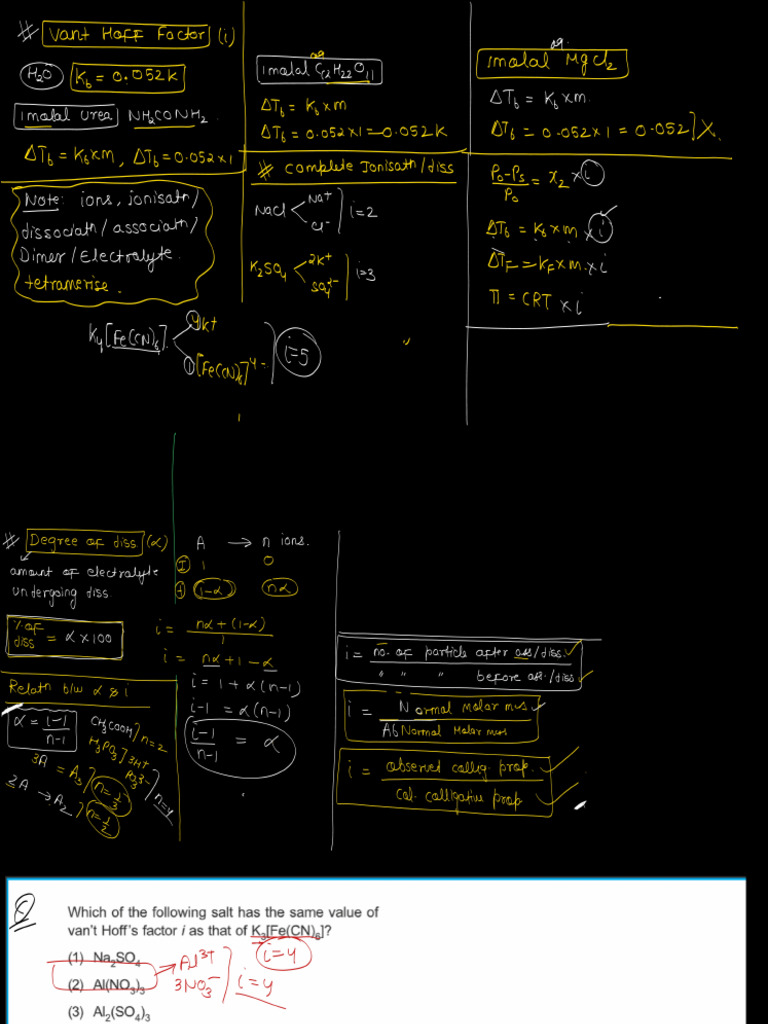 # Vant Hoff Factor (i)
H₂O K_b = 0.052K
1molal urea NH₂CONH₂
ΔT_b = K_b×m, ΔT_b = 0.052×1
Note: ions, ionisatn/
dissociatn/associatn/
Dimer/Electrolyte.
tetramerise.
aq
1molal C₁₂H₂₂O₁₁
ΔT_b = K_b×m
ΔT_b = 0.052×1 = 0.052K
# complete Ionisatn/diss
NaCl < Na⁺ Cl⁻ } i=2
K₂SO₄ < 2K⁺ SO₄²⁻ } i=3
K₄[Fe(CN)₆] < 4K⁺ 1[Fe(CN)₆]⁴⁻ } i=5
aq.
1molal MgCl₂
ΔT_b = K_b×m.
ΔT_b = 0.052×1 = 0.052] X.
P₀-P_s/P₀ = x₂ × i
ΔT_b = K_b×m × i
ΔT_F = K_F×m×i
π = CRT × i
# Degree of diss (α)
amount of electrolyte
undergoing diss.
% of diss = α×100
Relatn b/w α & i
α = i-1/n-1
CH₃COOH] n=2
H₃PO₃] 3H⁺ PO₃³⁻ ] n=4
3A = A₃] n=1/3
2A → A₂] n=1/2
A → n ions.
I 1 0
f 1-α nα
i = nα+(1-α)/1
i = nα+1-α
i = 1+α(n-1)
i-1 = α(n-1)
i-1/n-1 = α
i = no. of particle after ass/diss. / " " " before as./diss
i = Normal molar mas / AbNormal Molar mas
i = observed collig prop. / Cal. colligative prop
Q
Which of the following salt has the same value of
van't Hoff's factor i as that of K₃[Fe(CN)₆]?
i=4
(1) Na₂SO₄
(2) Al(NO₃)₃
Al³⁺
3NO₃⁻ i=4
(3) Al₂(SO₄)₃